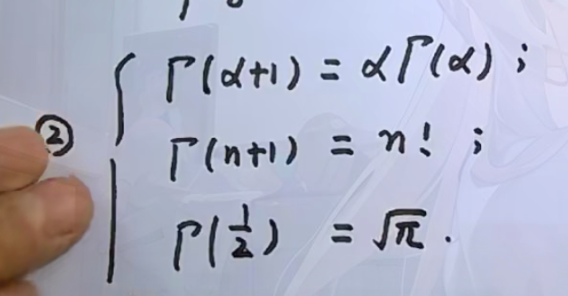 ② Γ(α+1) = αΓ(α) ;
Γ(n+1) = n! ;
Γ(1/2) = √π .